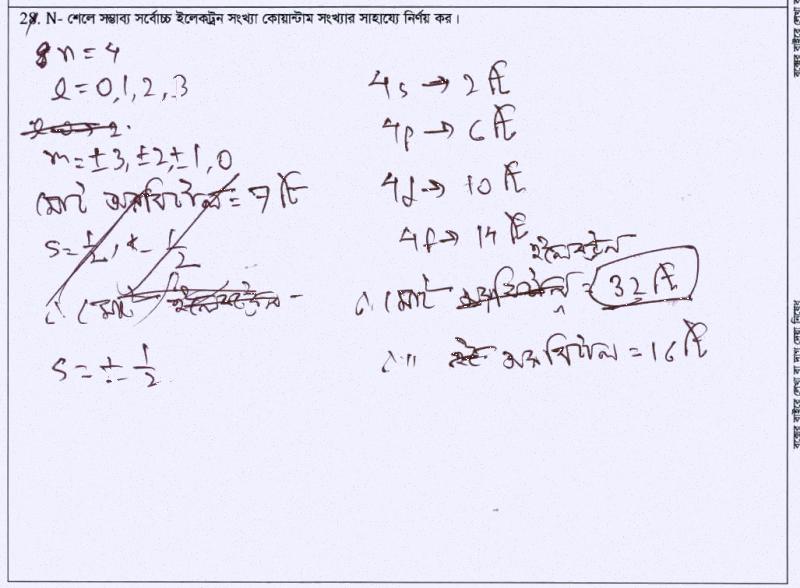 28. N- শেলে সম্ভাব্য সর্বোচ্চ ইলেকট্রন সংখ্যা কোয়ান্টাম সংখ্যার সাহায্যে নির্ণয় কর।
n = 4
l = 0, 1, 2, 3
m = ±3, ±2, ±1, 0
মোট অরবিটাল = 7 টি
s = 1/2, - 1/2
∴ মোট ইলেকট্রন -
s = ± 1/2
4s → 2 টি
4p → 6 টি
4d → 10 টি
4f → 14 টি
ইলেকট্রন
∴ মোট অরবিটাল = 32 টি
∴ " অরবিটাল = 16 টি
বক্সের বাইরে লেখা বা দাগ দেয়া নিষেধ